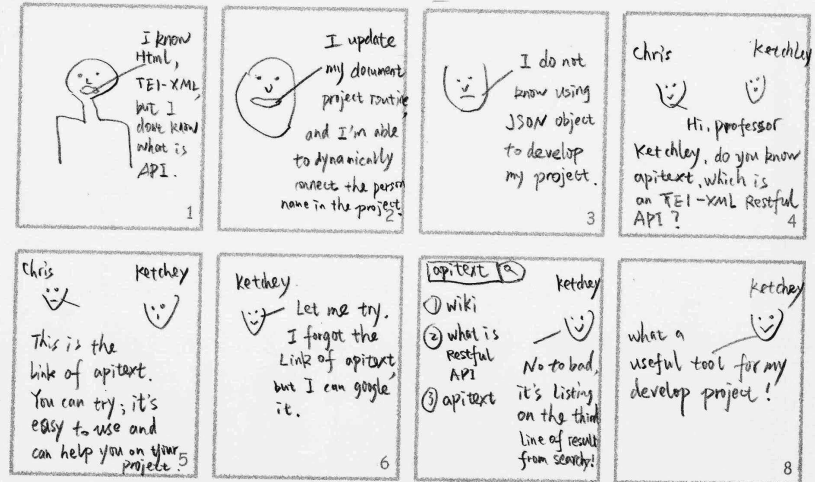 I know
Html,
TEI-XML,
but I
dont know
what is
API.
1
I update
my document
project routine,
and I'm able
to dynamically
connect the person
name in the project.
2
I do not
know using
JSON object
to develop
my project.
3
Chris
Ketchley
Hi, professor
Ketchley, do you know
apitext, which is
an TEI-XML Restful
API?
4
Chris
Ketchey
This is the
link of apitext.
You can try; it's
easy to use and
can help you on your
project.
5
Ketchey
Let me try.
I forgot the
Link of apitext,
but I can google
it.
6
apitext
Ketchey
① wiki
② what is
Restful
API
③ apitext
No to bad,
it's listing
on the third
Line of result
from search!
Ketchey
what a
useful tool for my
develop project!
8